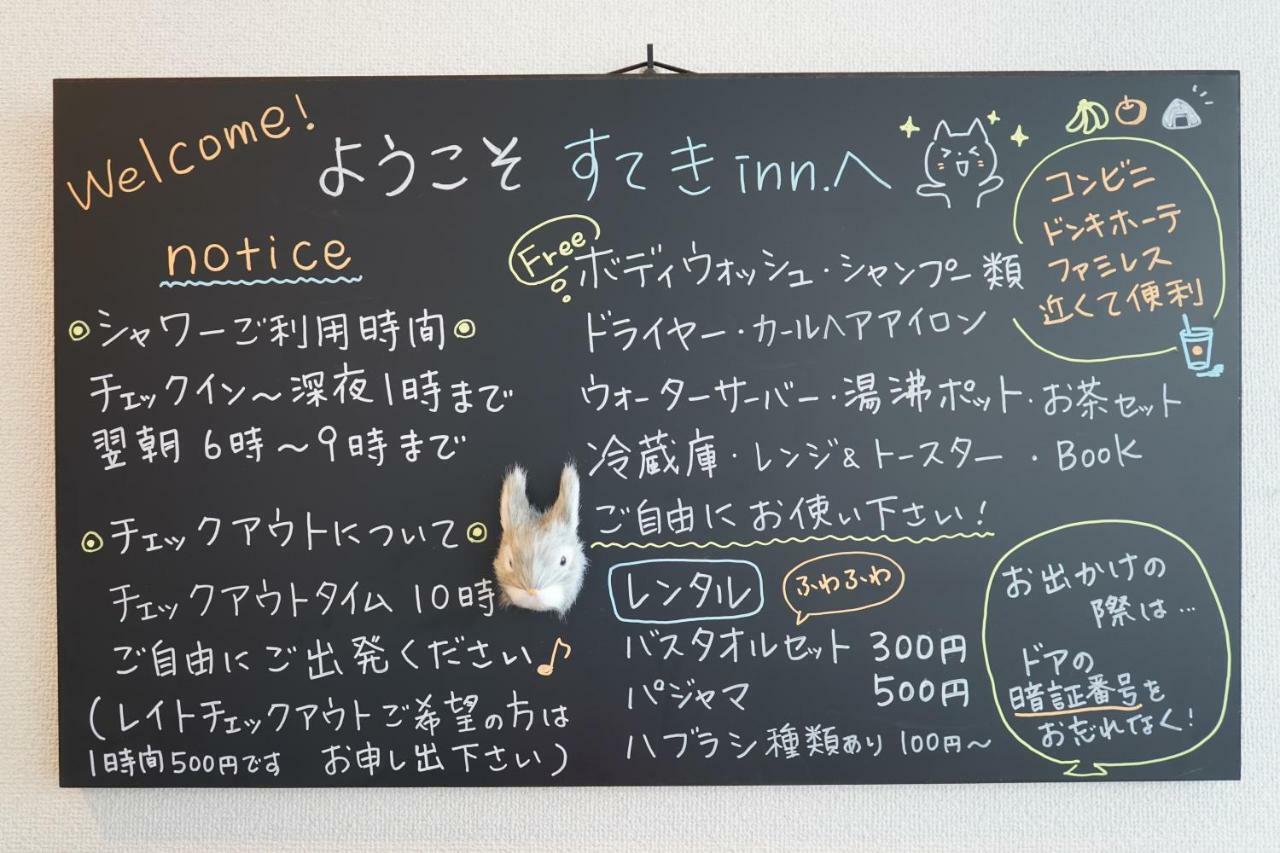 Welcome!
ようこそ すてき inn.へ
notice
◎シャワーご利用時間◎
チェックイン～深夜1時まで
翌朝 6時～9時まで
◎チェックアウトについて◎
チェックアウトタイム 10時
ご自由にご出発ください♪
(レイトチェックアウトご希望の方は
1時間500円です お申し出下さい)
Free
ボディウォッシュ・シャンプー類
ドライヤー・カールヘアアイロン
ウォーターサーバー・湯沸ポット・お茶セット
冷蔵庫・レンジ&トースター ・Book
ご自由にお使い下さい!
レンタル
ふわふわ
バスタオルセット 300円
パジャマ 500円
ハブラシ種類あり 100円～
コンビニ
ドンキホーテ
ファミレス
近くて便利
お出かけの
際は…
ドアの
暗証番号を
お忘れなく!